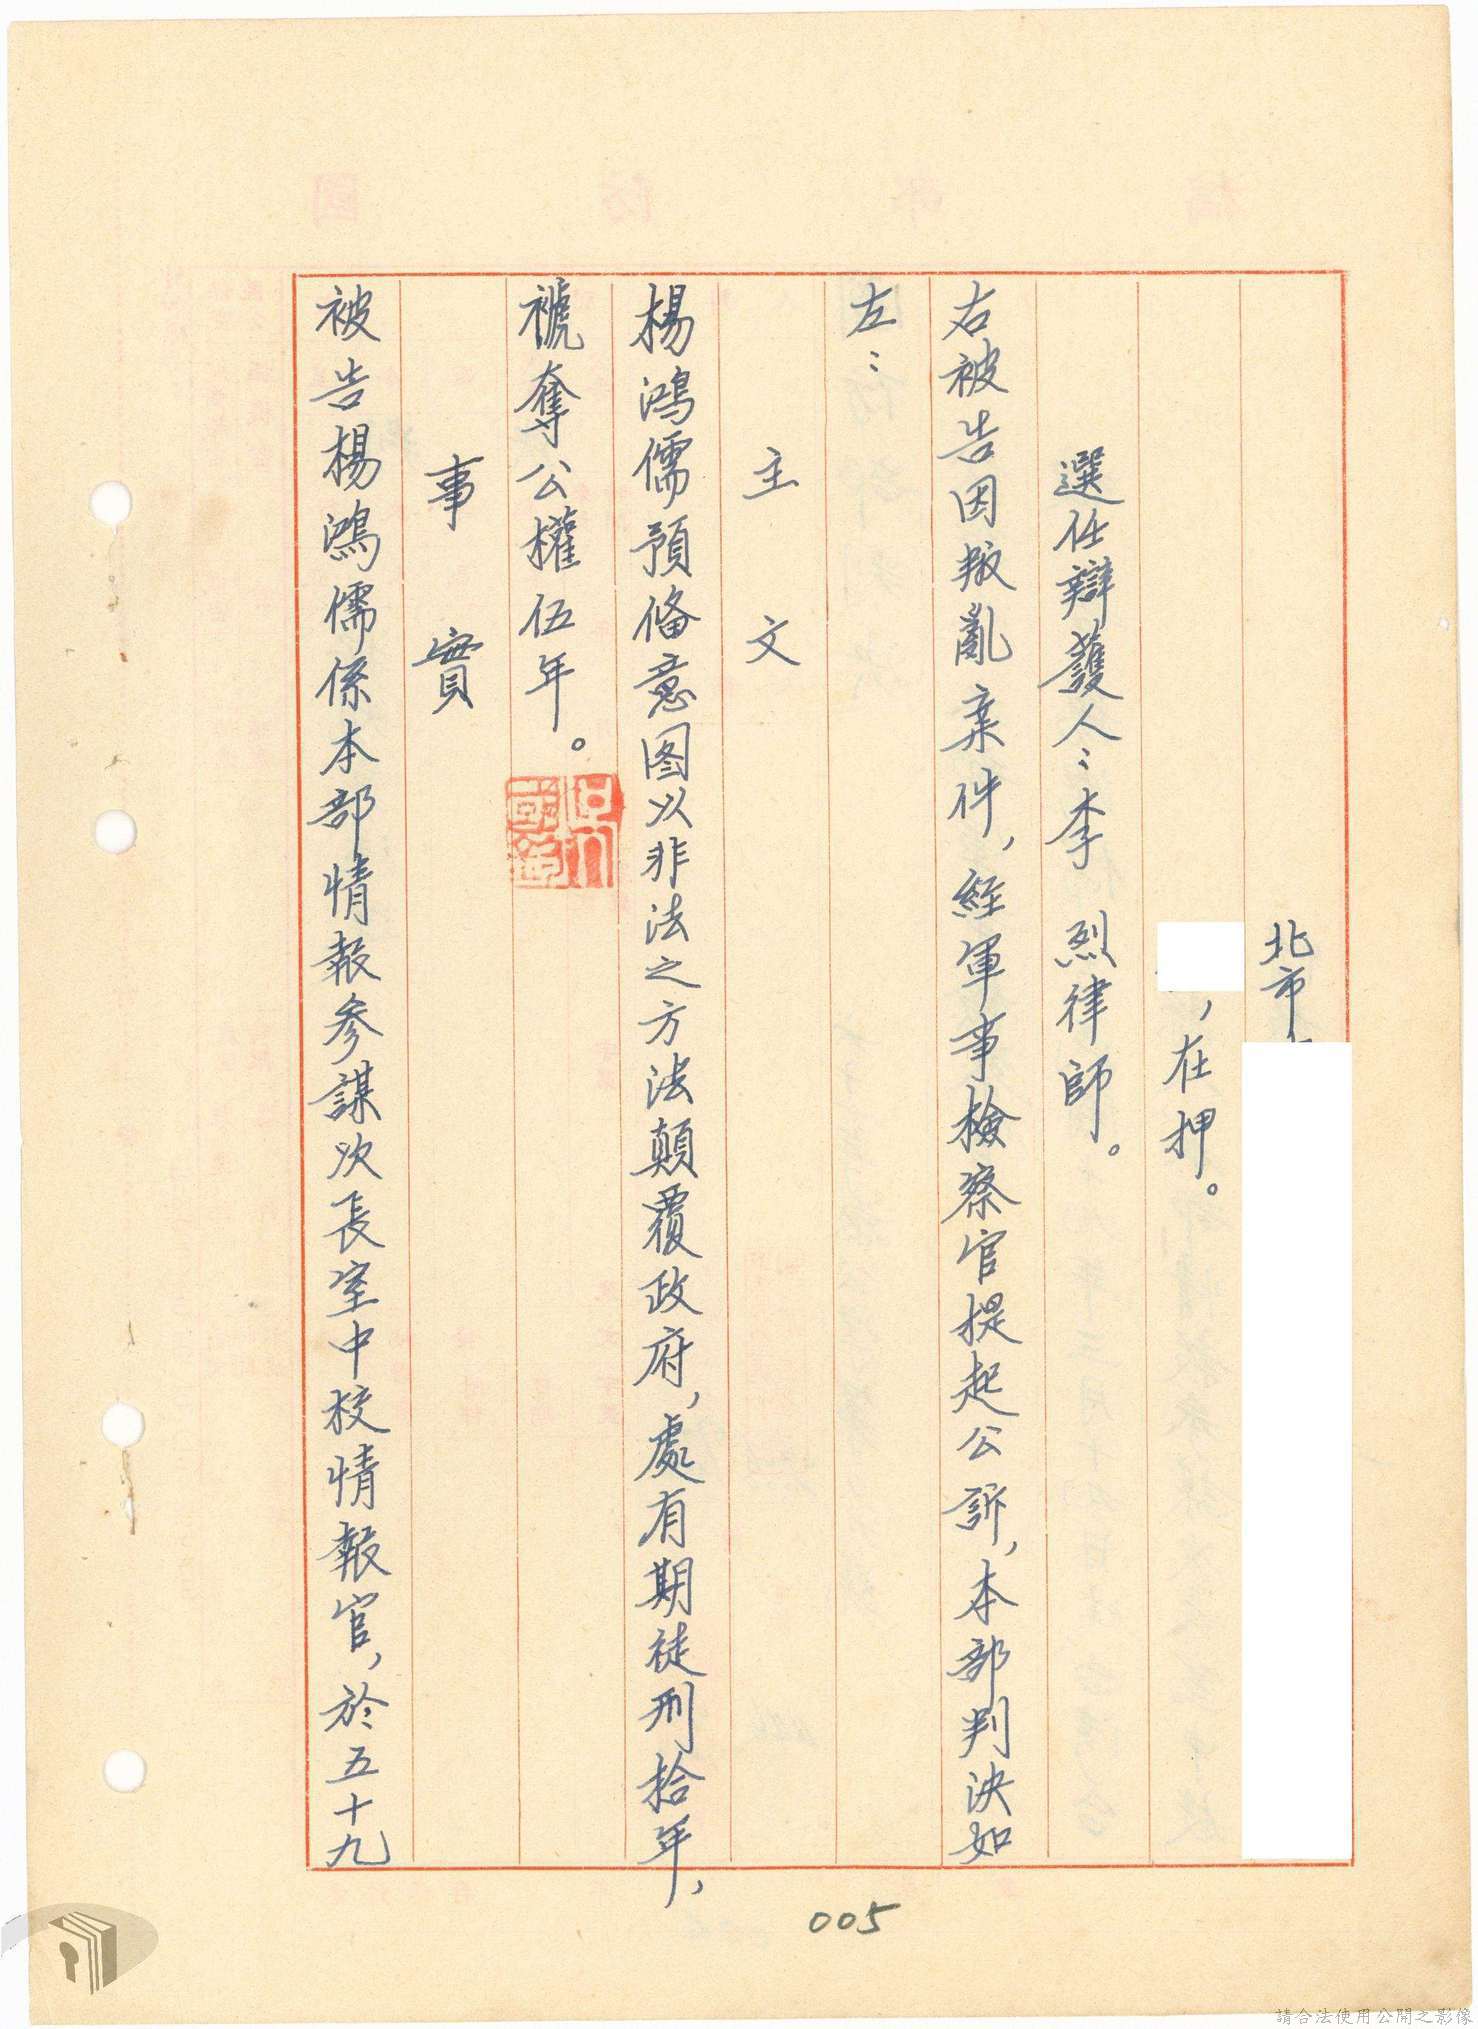 北市
，在押。
選任辯護人：李　烈律師。
右被告因叛亂案件，經軍事檢察官提起公訴，本部判決如
左：
主　文
楊鴻儒預備意图以非法之方法顛覆政府，處有期徒刑拾年，
褫奪公權伍年。
事　實
被告楊鴻儒係本部情報參謀次長室中校情報官，於五十九
005
請合法使用公開之影像